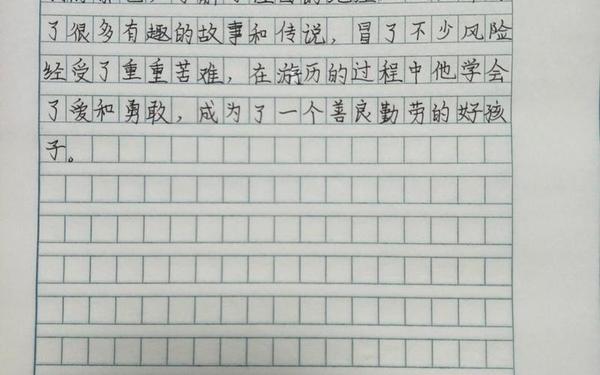 了很多有趣的故事和传说，冒了不少风险
经受了重重苦难，在游历的过程中他学会
了爱和勇敢，成为了一个善良勤劳的好孩
子。